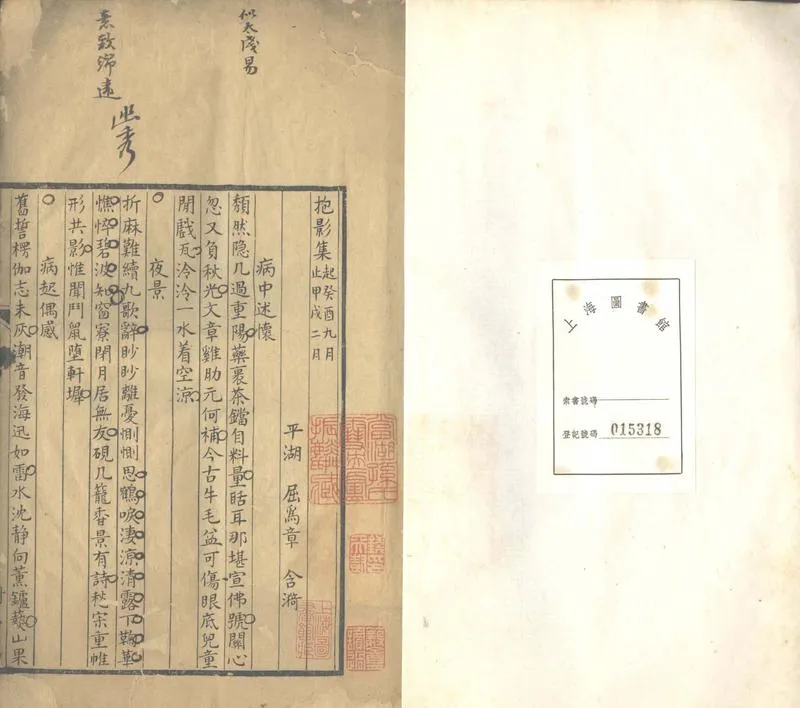 上海圖書館
索書號碼
登記號碼 015318
似太淺易
意致綿遠
抱影集 起癸酉九月 止甲戌二月
平湖 屈為章 含漪
病中述懷
頹然隐几過重陽藥裹茶鐺自料量聒耳那堪宣佛號關心
忽又負秋光文章雞肋元何補今古牛毛盆可傷眼底兒童
閒戲瓦泠泠一水着空涼
夜景
折麻難續九歌辭眇眇離憂惻惻思鶴唳淒涼清露下鞠華
憔悴碧波知窗寮閉月居無友硯几籠香景有詩愁宋重帷
形共影惟聞鬥鼠堕軒墀
病起偶感
舊誓楞伽志未灰潮音發海迅如雷水沈静向薰鑪爇山果